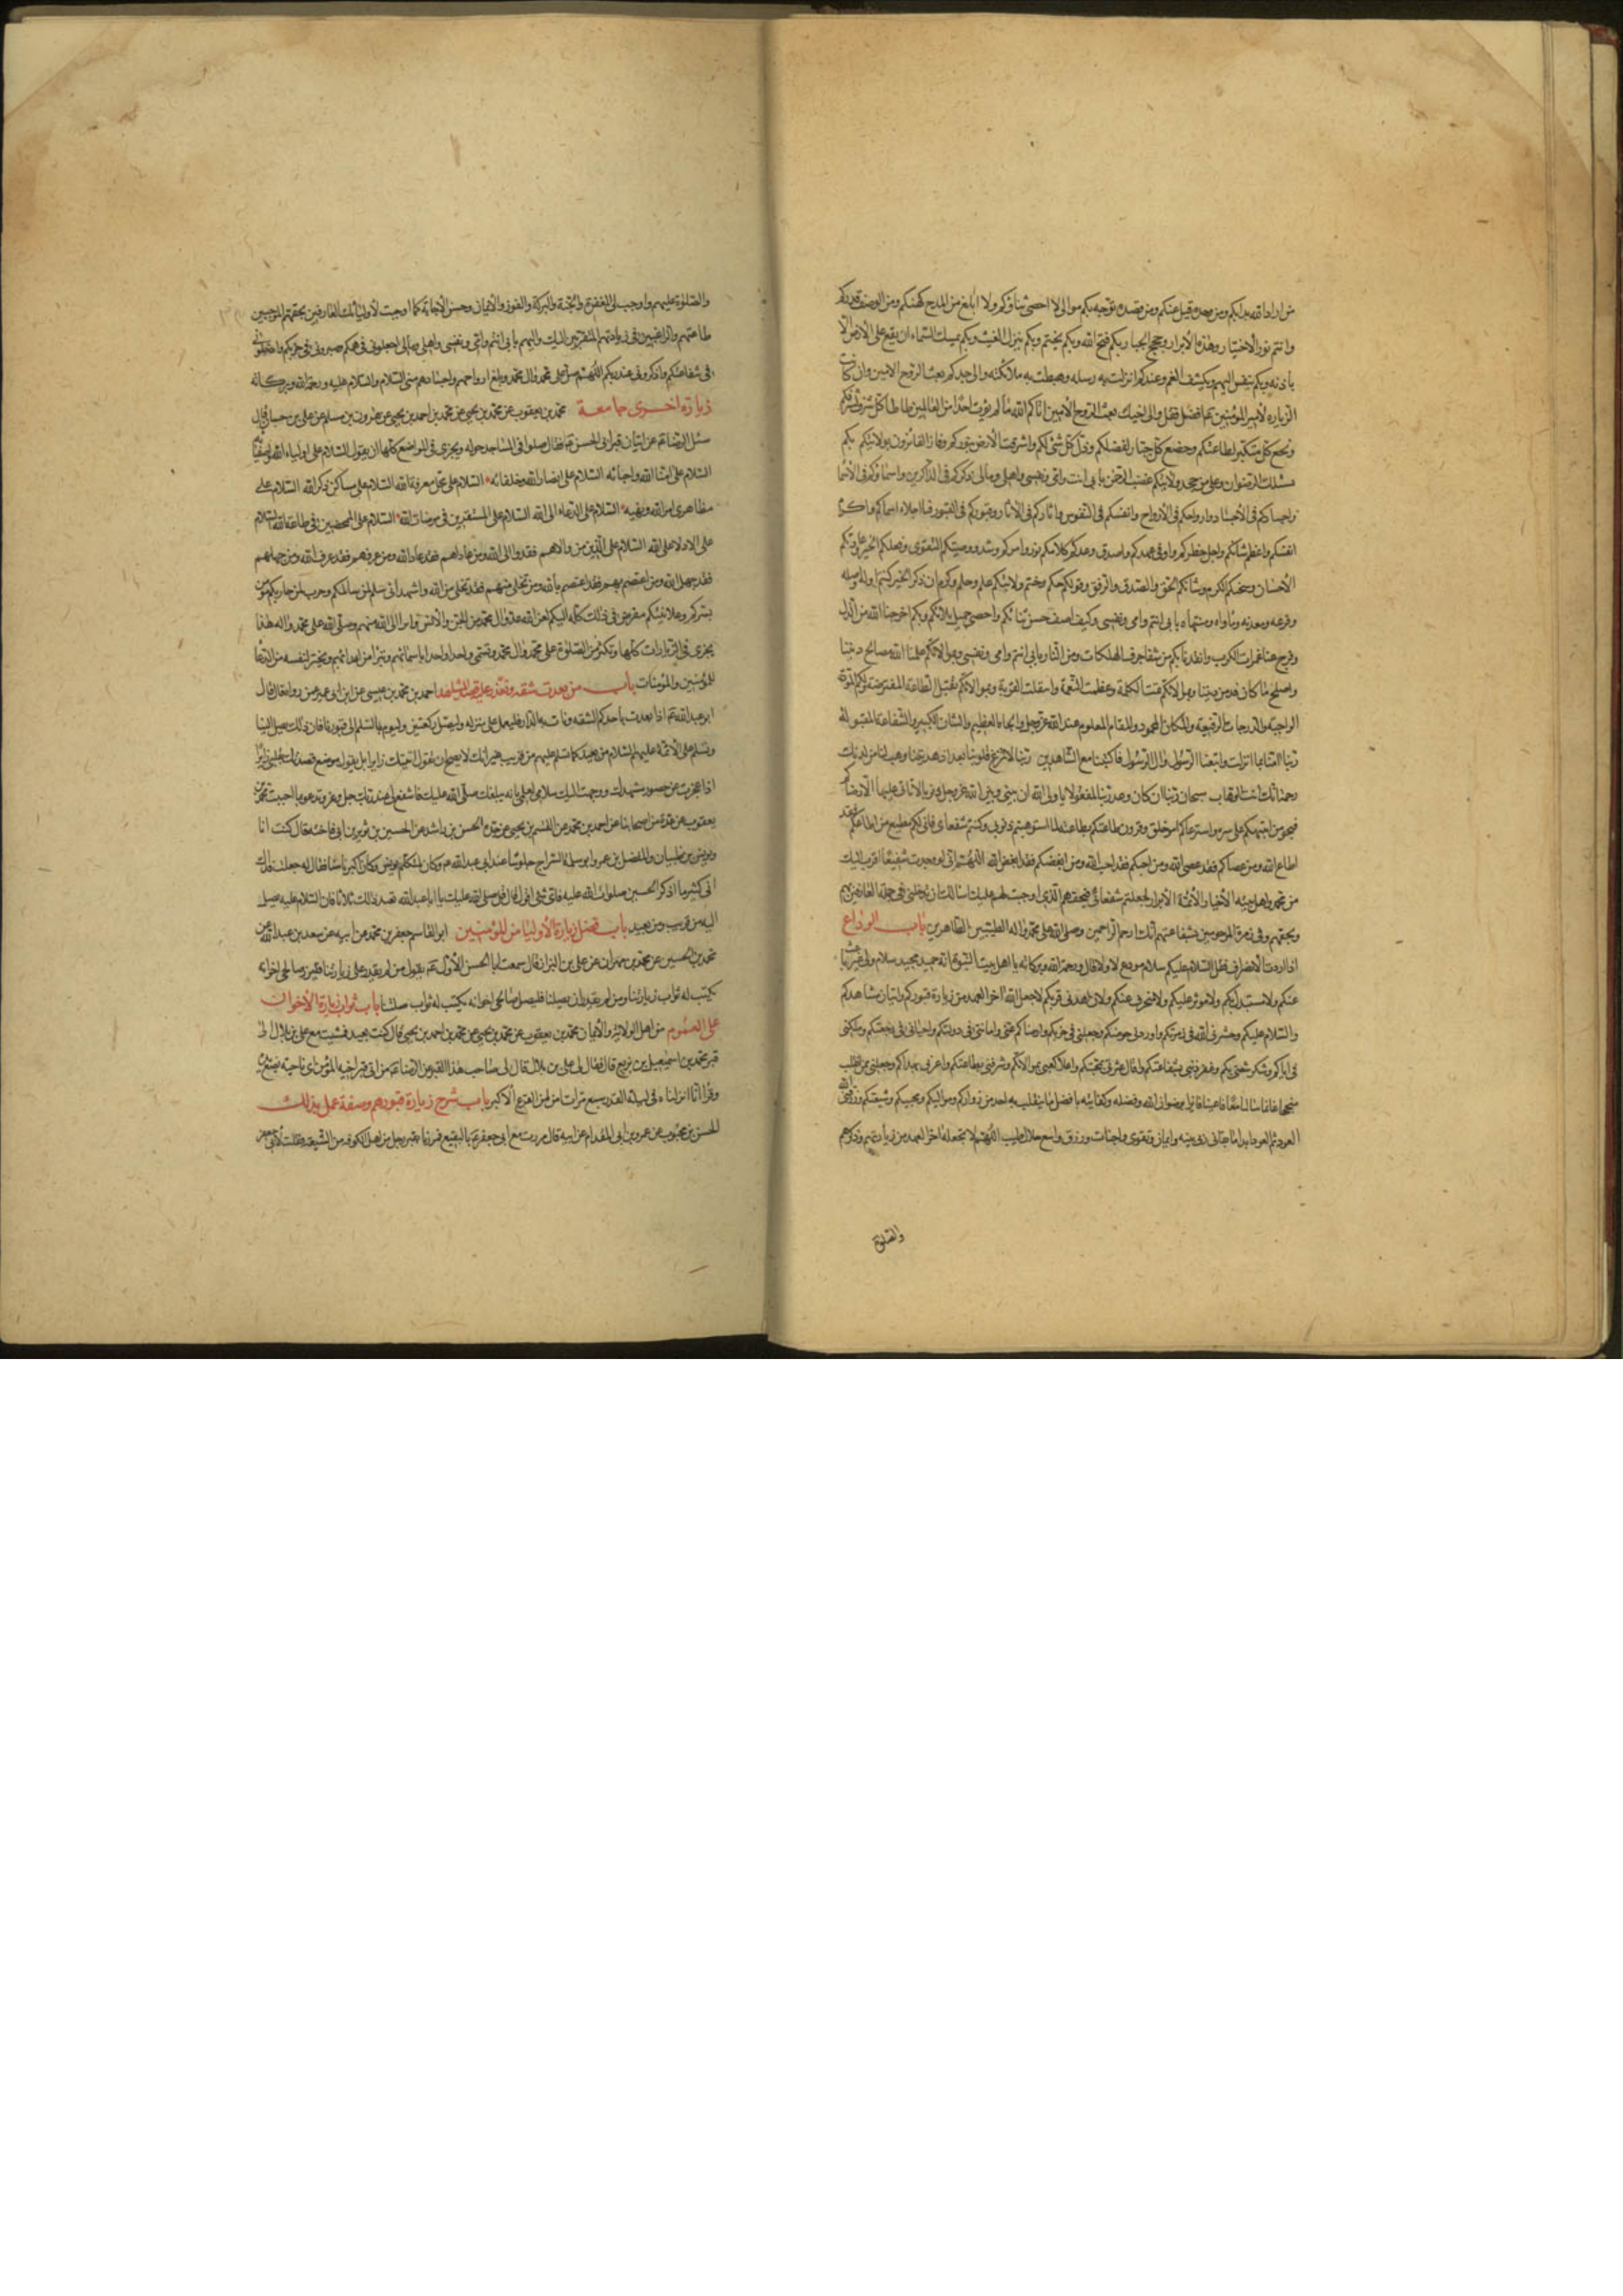 من اراد الله بدأ بكم ومن وحده قبل عنكم ومن قصده توجه بكم موالي لا احصي ثناؤكم ولا ابلغ من المدح كنهكم ومن الوصف قدركم
وانتم نور الاخيار وهداة الأبرار وحجج الجبار بكم فتح الله وبكم يختم وبكم ينزل الغيث وبكم يمسك السماء ان يقع على الارض الا
باذنه وبكم ينفس الهم ويكشف الغم وعندكم ما نزلت به رسله وهبطت به ملائكته والى جدكم بعث الروح الامين وان كانت
الزيارة لأمير المؤمنين عم فقل والى اخيك بعث الروح الأمين اتاكم الله ما لم يؤت احدا من العالمين طأطأ كل شريف لشرفكم
وبخع كل متكبر لطاعتكم وخضع كل جبار لفضلكم وذل كل شيء لكم واشرقت الأرض بنوركم وفاز الفائزون بولايتكم بكم
يسلك الى الرضوان وعلى من جحد ولايتكم غضب الرحمن بابي انت وامي ونفسي واهلي ومالي ذكركم في الذاكرين واسماؤكم في الأسماء
واجسادكم في الأجساد وارواحكم في الأرواح وانفسكم في النفوس واثاركم في الآثار وقبوركم في القبور فما احلا اسماكم واكرم
انفسكم واعظم شانكم واجل خطركم واوفى عهدكم واصدق وعدكم كلامكم نور وامركم رشد ووصيتكم التقوى وفعلكم الخير وعادتكم
الأحسان وسجيتكم الكرم وشأنكم الحق والصدق والرفق وقولكم حكم وحتم ورايكم علم وحلم وكرم ان ذكر الخير كنتم اوله واصله
وفرعه ومعدنه وماواه ومنتهاه بابي انتم وامي ونفسي وكيف اصف حسن ثنائكم واحصي جميل بلائكم وبكم اخرجنا الله من الذل
وفرج عنا غمرات الكروب وانقذنا بكم من شفا جرف الهلكات ومن النار بابي انتم وامي ونفسي وبموالاتكم علمنا الله معالم ديننا
واصلح ما كان فسد من دنيانا وبموالاتكم تمت الكلمة وعظمت النعمة وائتلفت الفرقة وبموالاتكم تقبل الطاعة المفترضة ولكم المودة
الواجبة والدرجات الرفيعة والمكان المحمود والمقام المعلوم عند الله عز وجل والجاه العظيم والشان الكبير والشفاعة المقبولة
ربنا امنا بما انزلت واتبعنا الرسول وال الرسول فاكتبنا مع الشاهدين ربنا لا تزغ قلوبنا بعد اذ هديتنا وهب لنا من لدنك
رحمة انك انت الوهاب سبحان ربنا ان كان وعد ربنا لمفعولا يا ولي الله ان بيني وبين الله عز وجل ذنوبا لا يأتي عليها الا رضاكم
فبحق من ائتمنكم على سره واسترعاكم امر خلقه وقرن طاعتكم بطاعته لما استوهبتم ذنوبي وكنتم شفعائي فاني لكم مطيع من اطاعكم فقد
اطاع الله ومن عصاكم فقد عصى الله ومن احبكم فقد احب الله ومن ابغضكم فقد ابغض الله اللهم اني لو وجدت شفيعا اقرب اليك
من محمد واهل بيته الأخيار الأئمة الأبرار لجعلتهم شفعائي فبحقهم الذي اوجبت لهم عليك اسالك ان تدخلني في جملة العارفين بهم
وبحقهم وفي زمرة المرحومين بشفاعتهم انك ارحم الراحمين وصلى الله على محمد واله الطيبين الطاهرين باب الوداع
اذا اردت الأنصراف فقل السلام عليكم سلام مودع لا ولا قال ورحمة الله وبركاته يا اهل بيت النبوة انه حميد مجيد سلام ولي غير راغب
عنكم ولا مستبدل بكم ولا مؤثر عليكم ولا منحرف عنكم ولا زاهد في قربكم لا جعل الله اخر العهد من زيارة قبوركم واتيان مشاهدكم
والسلام عليكم وحشرني الله في زمرتكم واوردني حوضكم وجعلني في حزبكم وارضاكم عني وامكنني في دولتكم واحياني في رجعتكم وملكني
في ايامكم وشكر سعيي بكم وغفر ذنبي بشفاعتكم واقال عثرتي بمحبتكم واعلا كعبي بموالاتكم وشرفني بطاعتكم واعزني بهداكم وجعلني ممن انقلب
مفلحا منجحا غانما سالما معافا غنيا فائزا برضوان الله وفضله وكفايته بافضل ما ينقلب به احد من زواركم ومواليكم ومحبيكم وشيعتكم ورزقني الله
العود ثم العود ابدا ما ابقاني ربي بنية وايمان وتقوى واخبات ورزق واسع حلال طيب اللهم لا تجعله اخر العهد من زيارتهم وذكرهم
والصلوة
والصلوة عليهم واوجب لي المغفرة والرحمة والبركة والفوز والأيمان وحسن الأجابة كما اوجبت لأوليائك العارفين بحقهم الموجبين
طاعتهم والراغبين في زيارتهم المتقربين اليك واليهم بابي انتم وامي ونفسي واهلي ومالي اجعلوني في همكم وصيروني في حزبكم وادخلوني
في شفاعتكم واذكروني عند ربكم اللهم صل على محمد وال محمد وابلغ ارواحهم واجسادهم مني السلام والسلام عليه ورحمة الله وبركاته
زيارة اخرى جامعة محمد بن يعقوب عن محمد بن يحيى عن محمد بن احمد بن يحيى عن هرون بن مسلم عن علي بن حسان قال
سئل الرضا عم عن اتيان قبر ابي الحسن عم فقال صلوا في المساجد حوله ويجزي في المواضع كلها ان يقول السلام على اولياء الله واصفيائه
السلام على امناء الله واحبائه السلام على انصار الله وخلفائه السلام على محل معرفة الله السلام على مساكن ذكر الله السلام على
مظاهري امر الله ونهيه السلام على الدعاة الى الله السلام على المستقرين في مرضات الله السلام على الممحصين في طاعة الله السلام
على الادلاء على الله السلام على الذين من والاهم فقد والى الله ومن عاداهم فقد عادا الله ومن عرفهم فقد عرف الله ومن جهلهم
فقد جهل الله ومن اعتصم بهم فقد اعتصم بالله ومن تخلى منهم فقد تخلى من الله واشهد اني سلم لمن سالمكم وحرب لمن حاربكم مؤمن
بسركم وعلانيتكم مفوض في ذلك كله اليكم لعن الله عدو ال محمد من الجن والأنس وابرا الى الله منهم وصلى الله على محمد واله هذا
يجزي في الزيارات كلها وتكثر من الصلوة على محمد وال محمد وتسمي واحدا واحدا باسمائهم وتبرأ من اعدائهم وتخير لنفسك من الدعاء
للمؤمنين والمؤمنات باب من بعدت شقته وتعذر عليه قصد المشاهد احمد بن محمد بن عيسى عن ابن ابي عمير عمن رواه قال قال
ابو عبد الله عم اذا بعدت باحدكم الشقة ونأت به الدار فليعل على منزله وليصل ركعتين وليوم بالسلم الى قبورنا فان ذلك يصل الينا
وتسلم على الأئمة عليهم السلام من بعيد كما تسلم عليهم من قريب غير انك لا يصح ان تقول اتيتك زايرا بل تقول موضع قصدتك بقلبي زايرا
اذا عجزت عن حضور مشهدك ووجهت اليك سلامي لعلمي بانه يبلغك صلى الله عليك فاشفع لي عند ربك جل وعز وتدعو بما احببت محمد بن
يعقوب عن عدة من اصحابنا عن احمد بن محمد عن القسم بن يحيى عن جده الحسن بن راشد عن الحسين بن ثوير بن ابي فاخته قال كنت انا
ويونس بن ظبيان والمفضل بن عمر وابو سلمة السراج جلوسا عند ابي عبد الله عم وكان المتكلم يونس وكان اكبرنا سنا فقال له جعلت فداك
اني كثيرا ما اذكر الحسين صلوات الله عليه فاي شي اقول قال قل صلى الله عليك يا ابا عبد الله تعيد ذلك ثلاثا فان السلام عليه يصل
اليه من قريب ومن بعيد باب فضل زيارة الأوليا من المؤمنين ابو القاسم جعفر بن محمد عن ابيه عن سعد بن عبد الله عن
محمد بن الحسين عن محمد بن مهران عن علي بن البزاز قال سمعت ابا الحسن الأول عم يقول من لم يقدر على زيارتنا فليزر صالحي اخوانه
يكتب له ثواب زيارتنا ومن لم يقدر ان يصلنا فليصل صالحي اخوانه يكتب له ثواب صلتنا باب ثواب زيارة الأخوان
على العموم من اهل الولاية والأيمان محمد بن يعقوب عن محمد بن يحيى عن محمد بن احمد بن يحيى قال كنت بفيد فمشيت مع علي بن بلال الى
قبر محمد بن اسمعيل بن بزيع قال فقال لي علي بن بلال قال لي صاحب هذا القبر عن الرضا عم من اتى قبر اخيه المؤمن اي ناحية يضع يده
وقرأ انا انزلناه في ليلة القدر سبع مرات امن من الفزع الأكبر باب شرح زيارة قبورهم وصفة عمل بذلك
الحسن بن محبوب عن عمرو بن ابي المقدام عن ابيه قال مررت مع ابي جعفر عم بالبقيع فمررنا بقبر رجل من اهل الكوفة من الشيعة فقلت لأبي جعفر